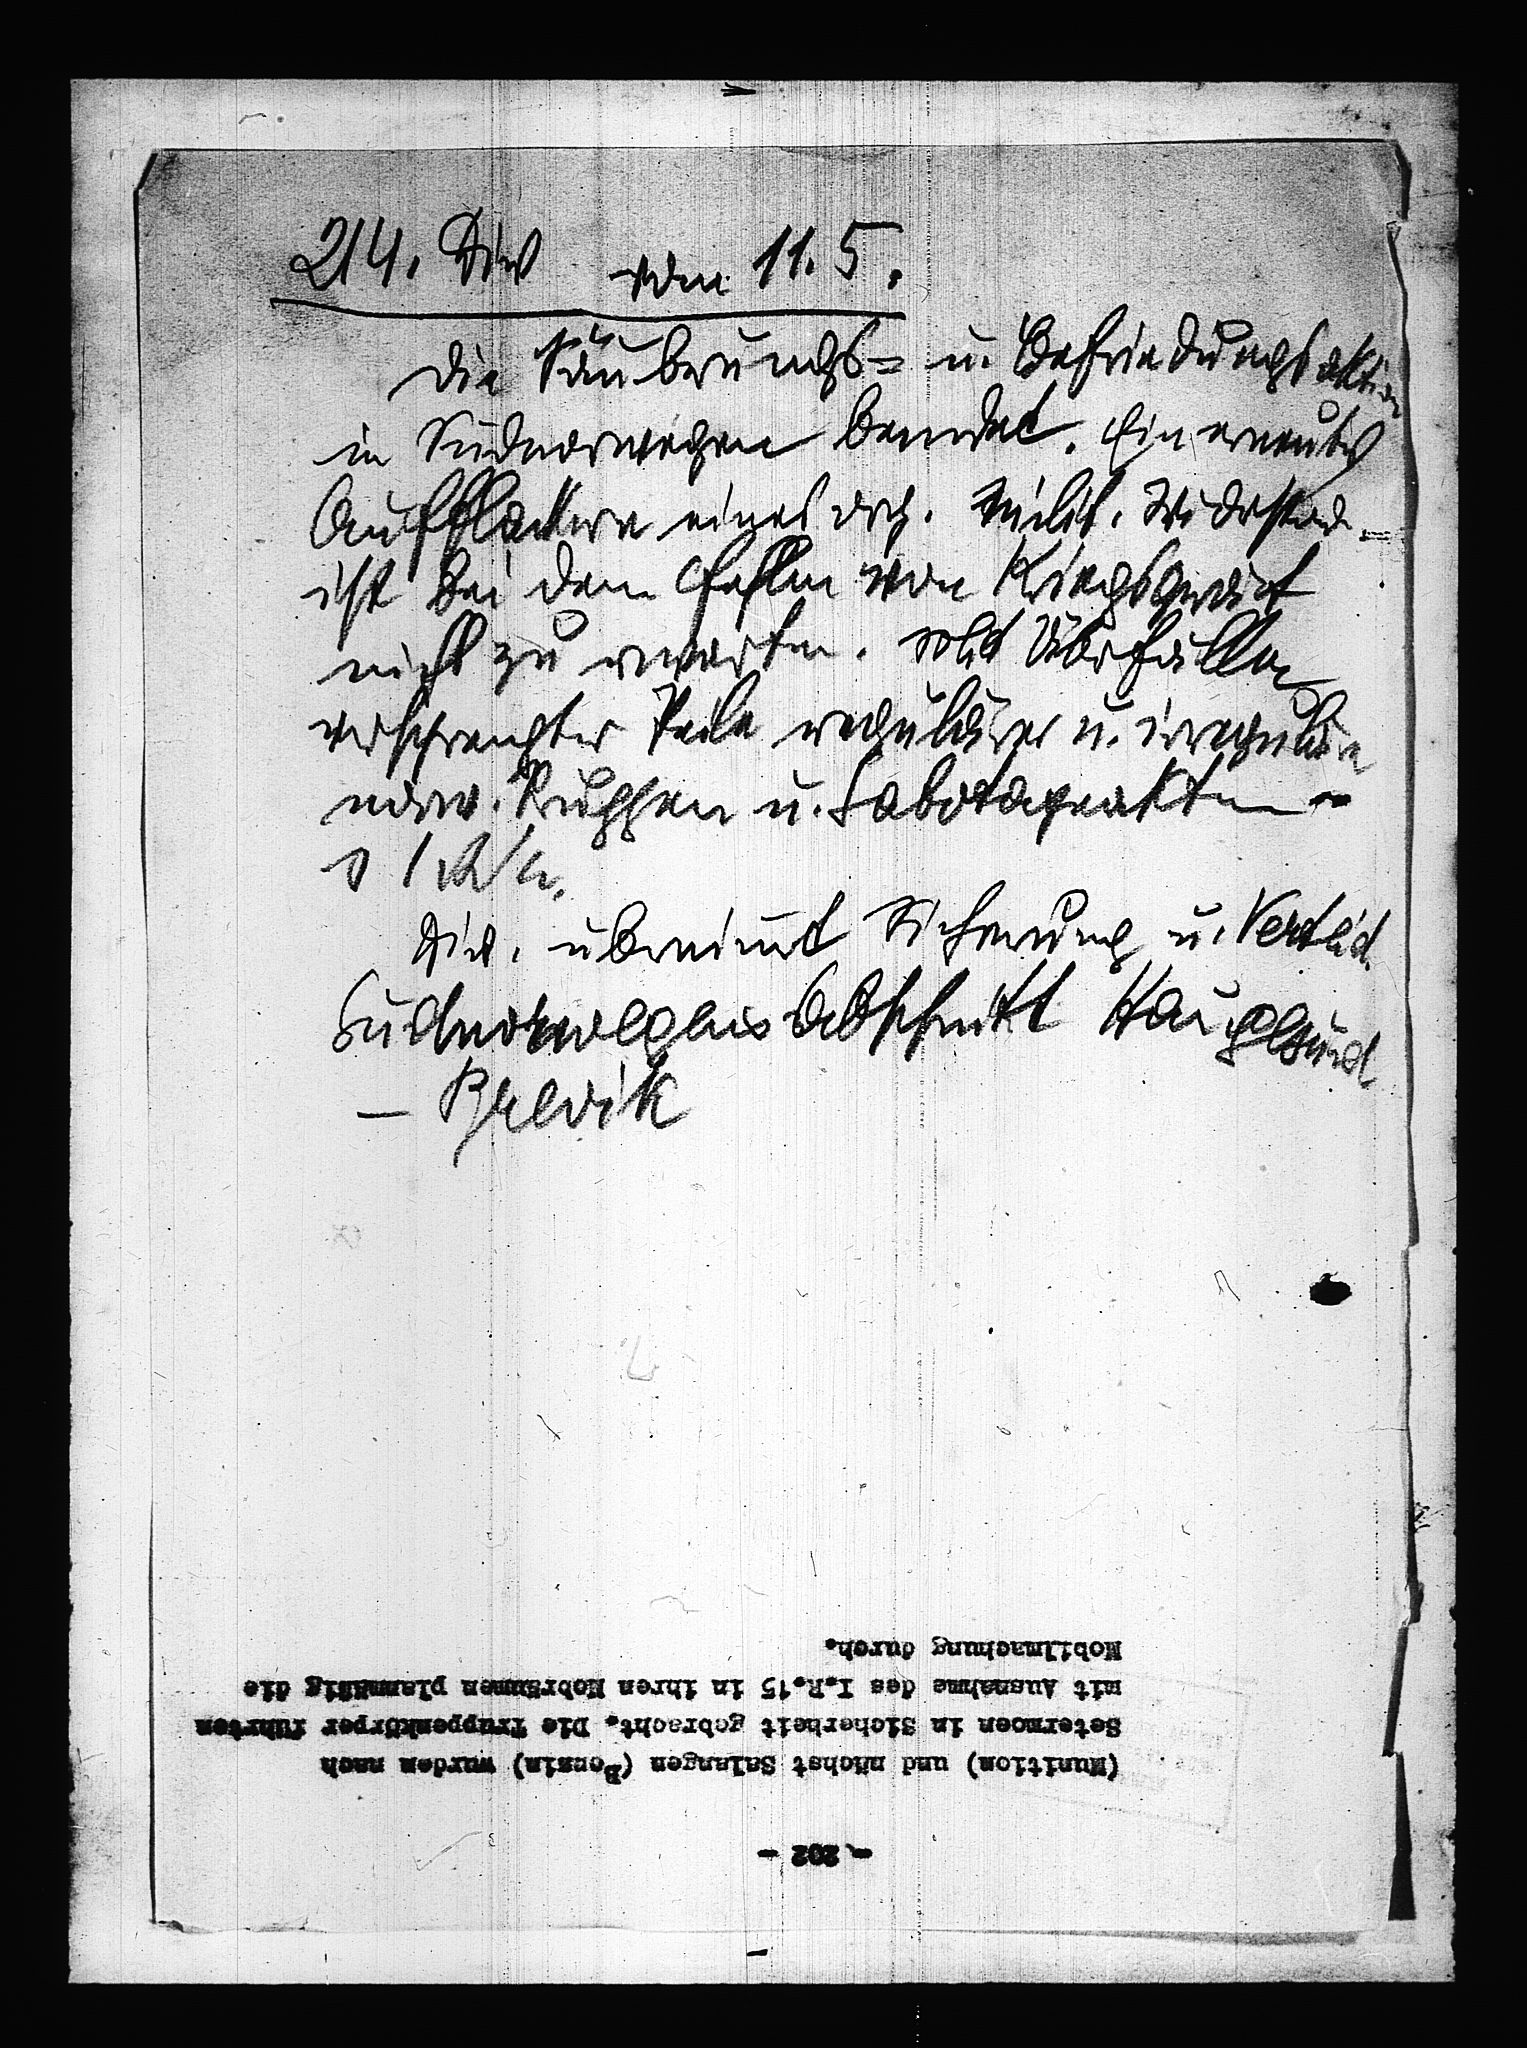 214. Div vom 11.5.
Die Säuberungs- u. Befriedungsaktion
in Südnorwegen beendet. Ein erneutes
Aufflackern eines org. milit. Widerstand.
ist bei dem Fehlen von Kriegsgerät
nicht zu erwarten. Mit Überfällen
versprengter Teile regulärer u. irregulärer
norw. Truppen u. Sabotageakten
Div. übernimt Sicherung u. Verteid.
Südnorwegens Abschnitt Haugesund
— Brevik
- 202 -
(Munition) und nächst Salangen (Benzin) wurden nach
Setermoen in Sicherheit gebracht. Die Truppenkörper führten
mit Ausnahme des I.R.15 in ihren Mobräumen planmäßig die
Mobilmachung durch.